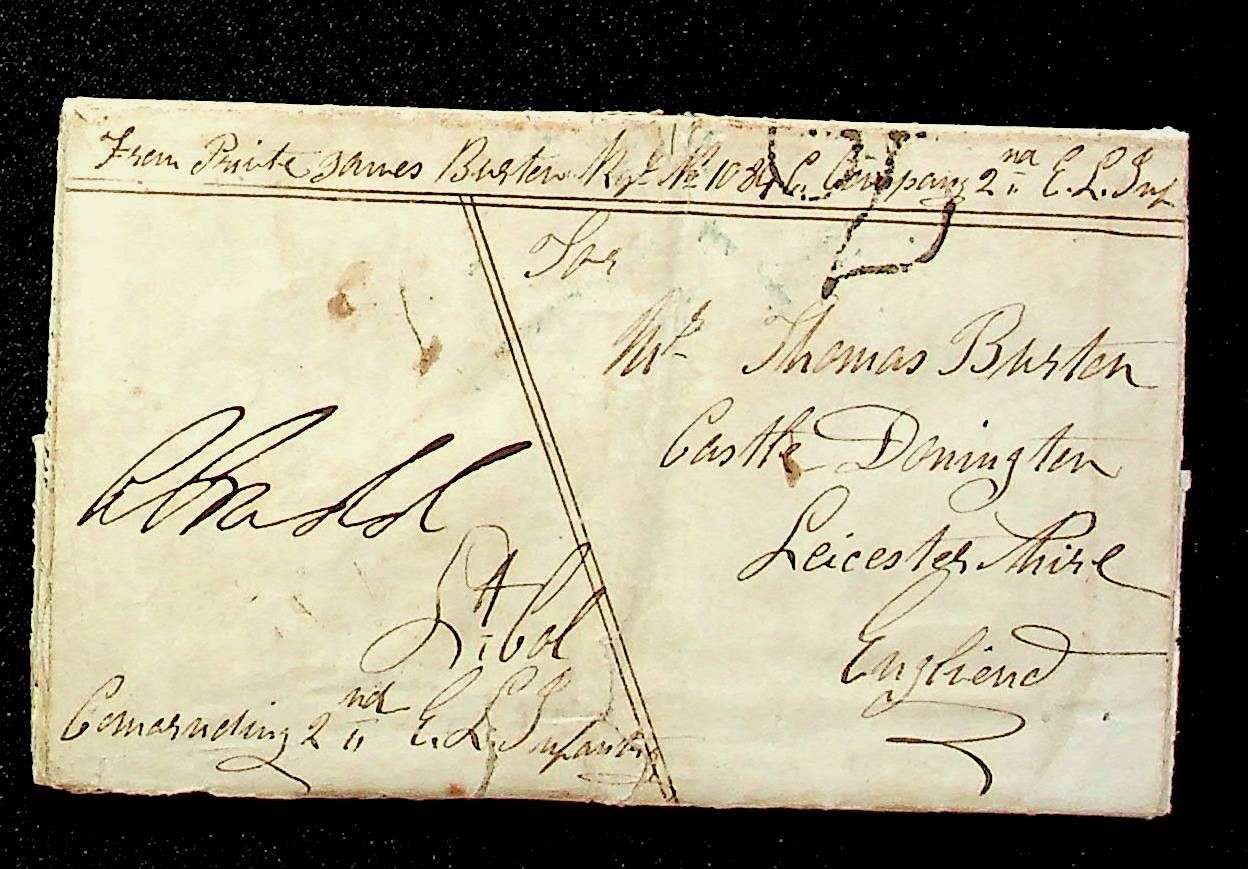 From Privte James Burten Regt No 1084 C. Company 2nd E. L. Inf
For
Mr Thomas Burten
Castle Donington
Leicester Shire
Engliend
Lt Col
Comarnding 2nd E. L. Infantry